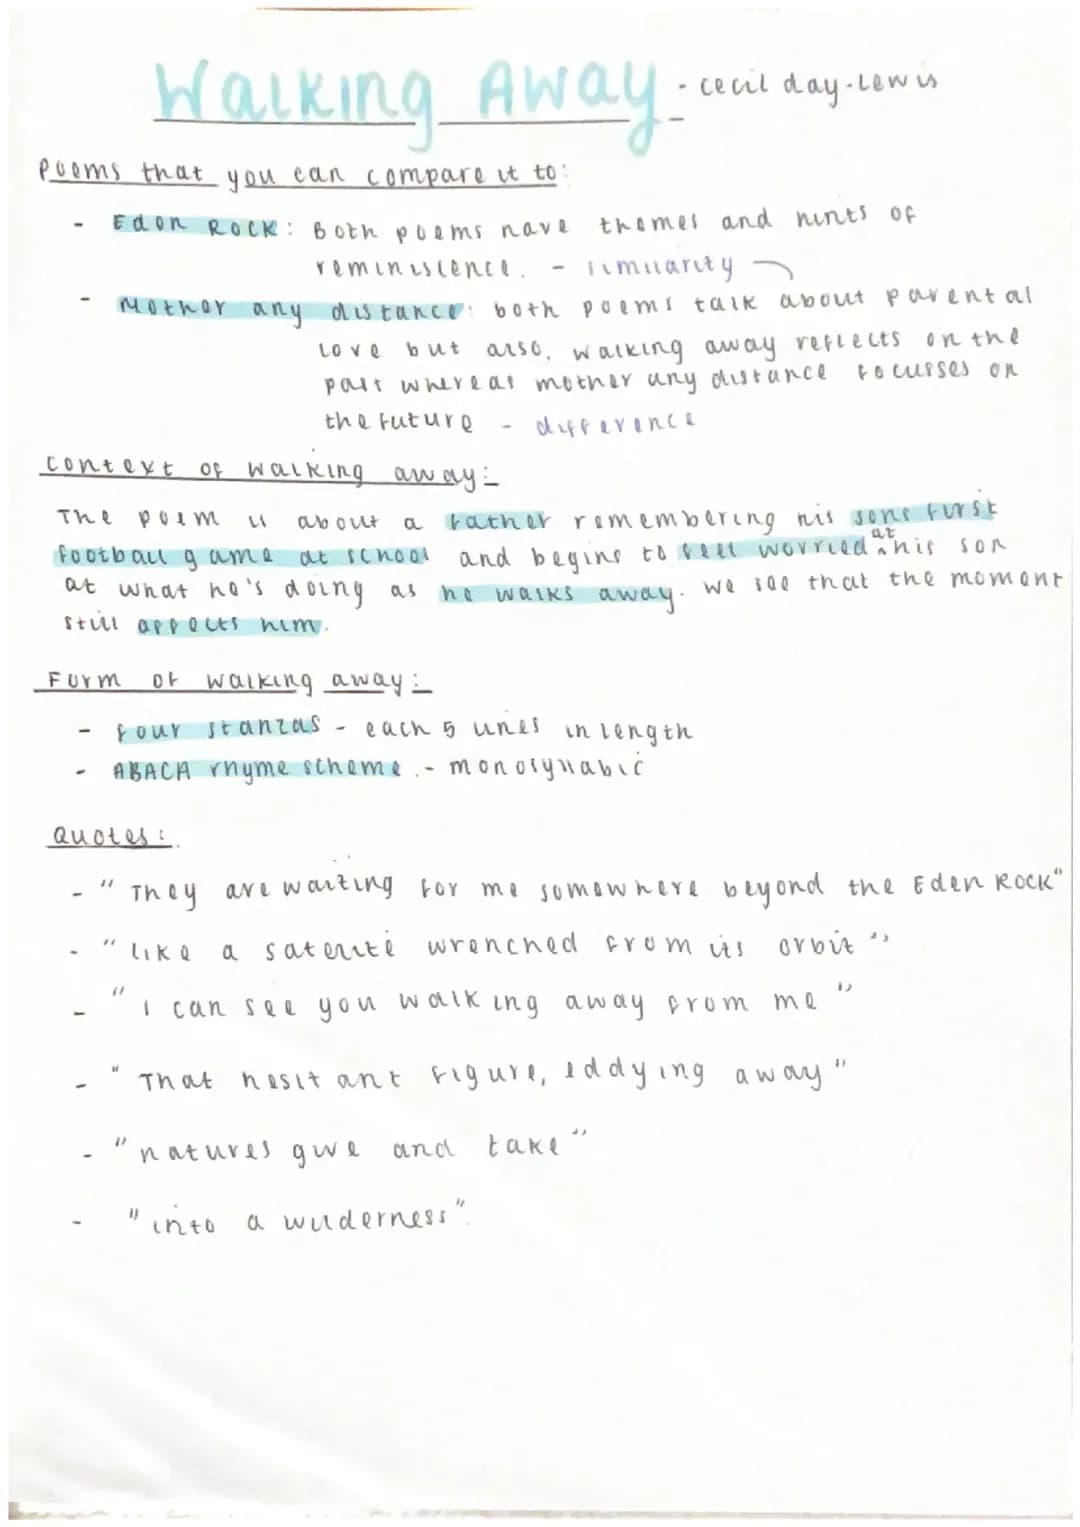 Walking Away - cecil day-lewis
Poems that you can compare it to:
- Eden Rock: Both poems have themes and hints of
reminiscence. - similarity
- Mother any distance: both poems talk about parental
love but also, walking away reflects on the
past whereas mother any distance focusses on
the future - difference
Context of walking away:
The poem is about a father remembering his sons first
football game at school and begins to feel worried at his son
at what he's doing as he walks away. we see that the moment
still affects him.
Form of walking away:
- four stanzas - each 5 lines in length
- ABACA rhyme scheme. - monosyllabic
Quotes:
- "They are waiting for me somewhere beyond the Eden Rock"
- "like a satellite wrenched from its orbit"
- "I can see you walking away from me"
- "That hesitant figure, eddying away"
- "natures give and take"
- "into a wilderness".